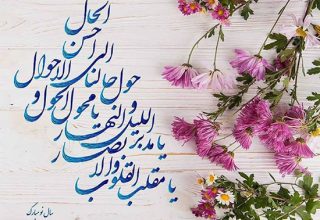 یا مقلب القلوب والا
بصار
یا مدبر
اللیل و النهار
یا محول الحول و
الاحوال
حول حالنا
الی احسن
الحال
سال نو مبارک